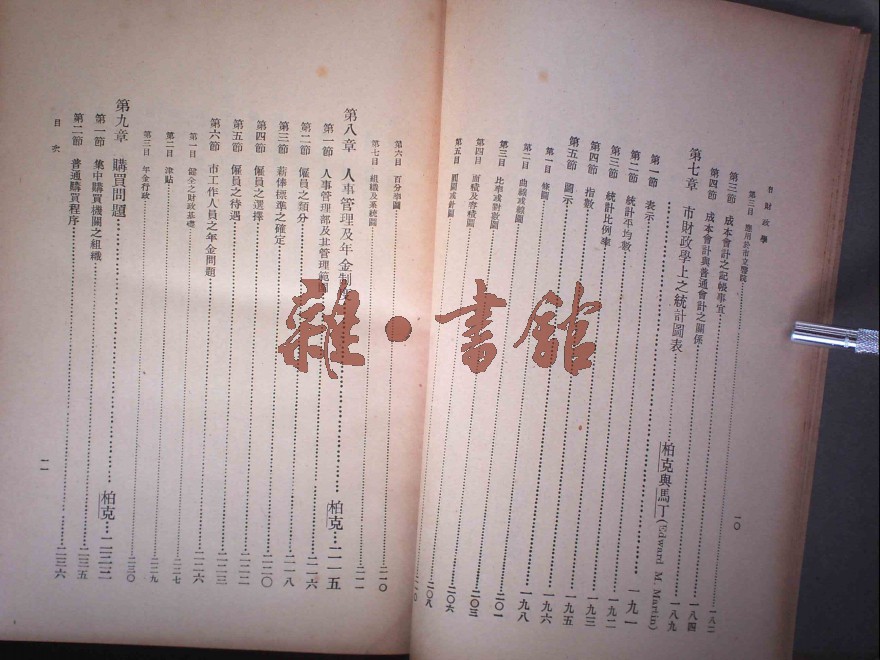 市財政學
一〇
第三目 應用於市立醫院
第三節 成本會計之記帳事宜 一八二
第四節 成本會計與普通會計之關係 一八四
第七章 市財政學上之統計圖表 柏克與馬丁(Edward M. Martin) 一八九
第一節 表示 一九一
第二節 統計平均數 一九二
第三節 統計比例率 一九三
第四節 指數 一九五
第五節 圖示 一九六
第一目 條圖 一九八
第二目 曲線或線圖 二〇一
第三目 比率或對數圖 二〇三
第四目 面積及容積圖 二〇六
第五目 圓圖或針圖 二〇八
第六目 百分率圖 二一〇
第七目 組織及系統圖 二一一
第八章 人事管理及年金制度 柏克 二一五
第一節 人事管理部及其管理範圍 二一六
第二節 僱員之類分 二一八
第三節 薪俸標準之確定 二二〇
第四節 僱員之選擇 二二二
第五節 僱員之待遇 二二三
第六節 市工作人員之年金問題 二二六
第一目 健全之財政基礎 二二七
第二目 津貼 二二九
第三目 年金行政 二三〇
第九章 購買問題 柏克 二三二
第一節 集中購買機關之組織 二三五
第二節 普通購買程序 二三六
目次
一一
雜·書館